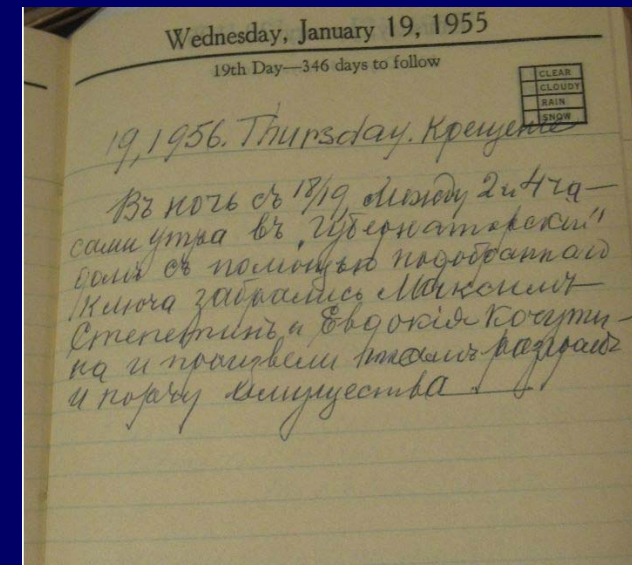 Wednesday, January 19, 1955
19th Day—346 days to follow
CLEAR
CLOUDY
RAIN
SNOW
19, 1956. Thursday. Крещение
Въ ночь съ 18/19, между 2 и 4 ча-
сами утра въ „Губернаторскій"
домъ съ помощью подобраннаго
ключа забрались Максимъ
и Евдокія Кочути-
на и произвели тамъ разгромъ
и порчу имущества.